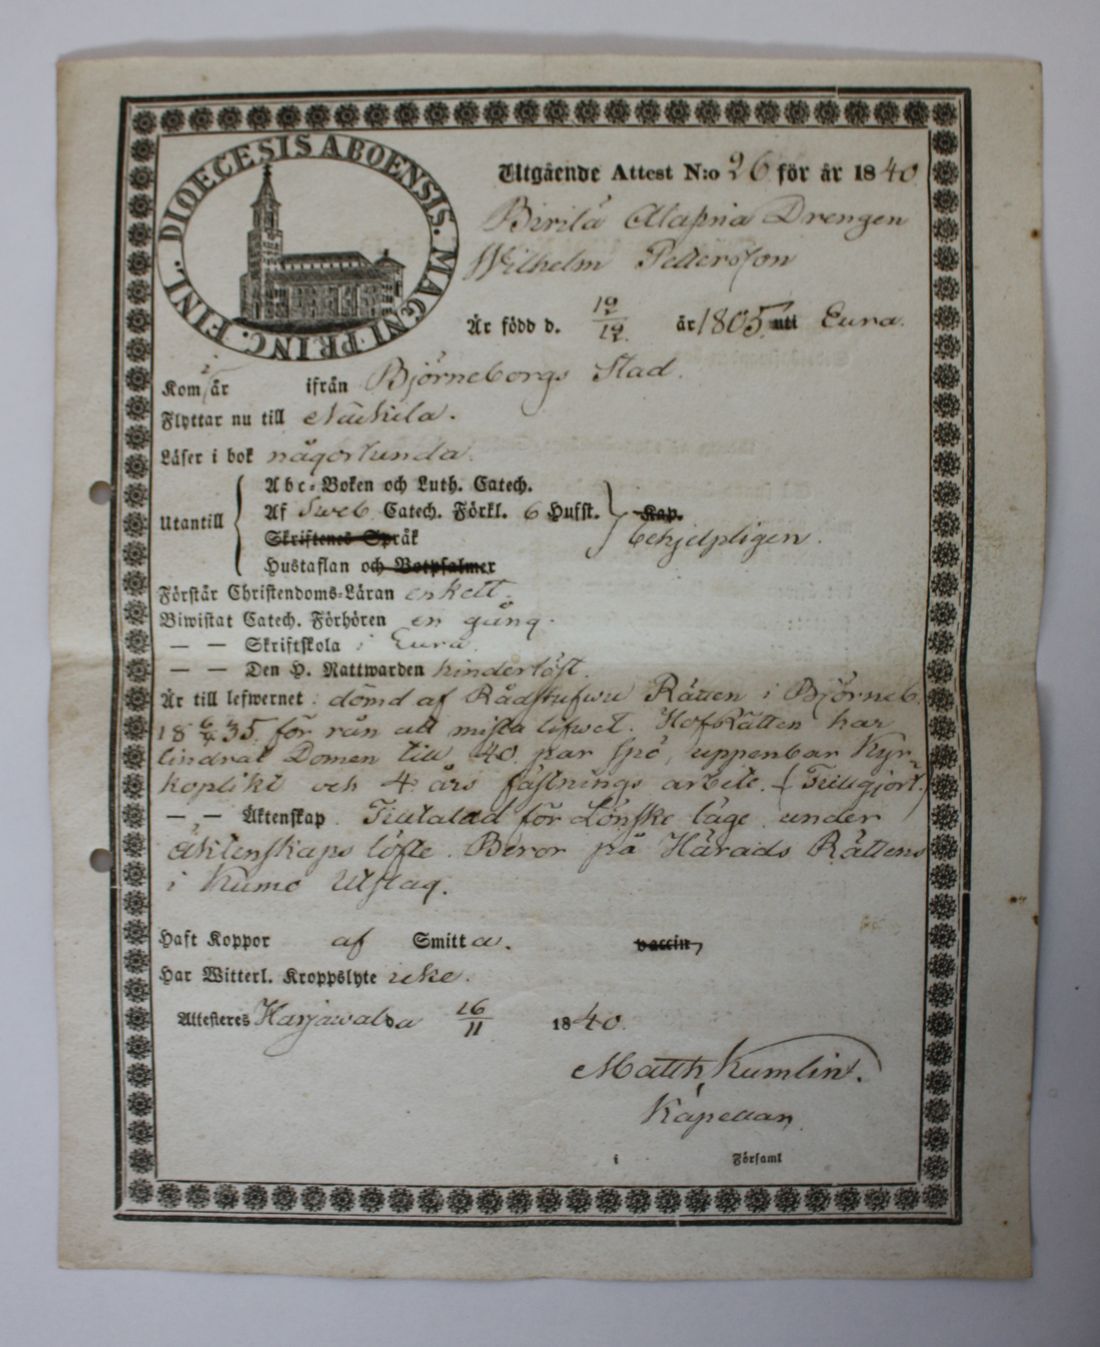 DIOECESIS ABOENSIS. MAGNI PRINC. FINL.
Utgående Attest N:o 26 för år 1840
Birila Alapria Drengen
Wilhelm Petterson
Är född d. 12/12 år 1805 uti Eura.
Kom i år ifrån Björneborgs Stad.
Flyttar nu till Nackila.
Läser i bok någorlunda.
Utantill
Abc-Boken och Luth. Catech.
Af Sveb. Catech. Förkl. 6 Hufst. Kap.
Skriftenes Språk behjelpligen.
Hustaflan och Botpsalmer
Förstår Christendoms-Läran enkelt.
Biwistat Catech. Förhören en gång.
— — Skriftskola i Eura.
— — Den H. Nattwarden hinderlöst.
Är till lefwernet: dömd af Rådstufwu Rätten i Björneb.
18 6/4 35 för rån att mista lifwet. HofRätten har
lindrat Domen till 40 par spö, uppenbar Kyr-
koplikt och 4 års fästnings arbete. (Fullgjort.)
— — Äktenskap. Tilltalad för Lönske läge under
äktenskaps löfte. Beror på Härads Rättens
i Kumo Utslag.
Haft Koppor af Smitta. vaccin,
Har Witterl. Kroppslyte icke.
Attesteres Harjawalda 16/11 1840.
Matth. Kumlin.
Kapellan
i Församl